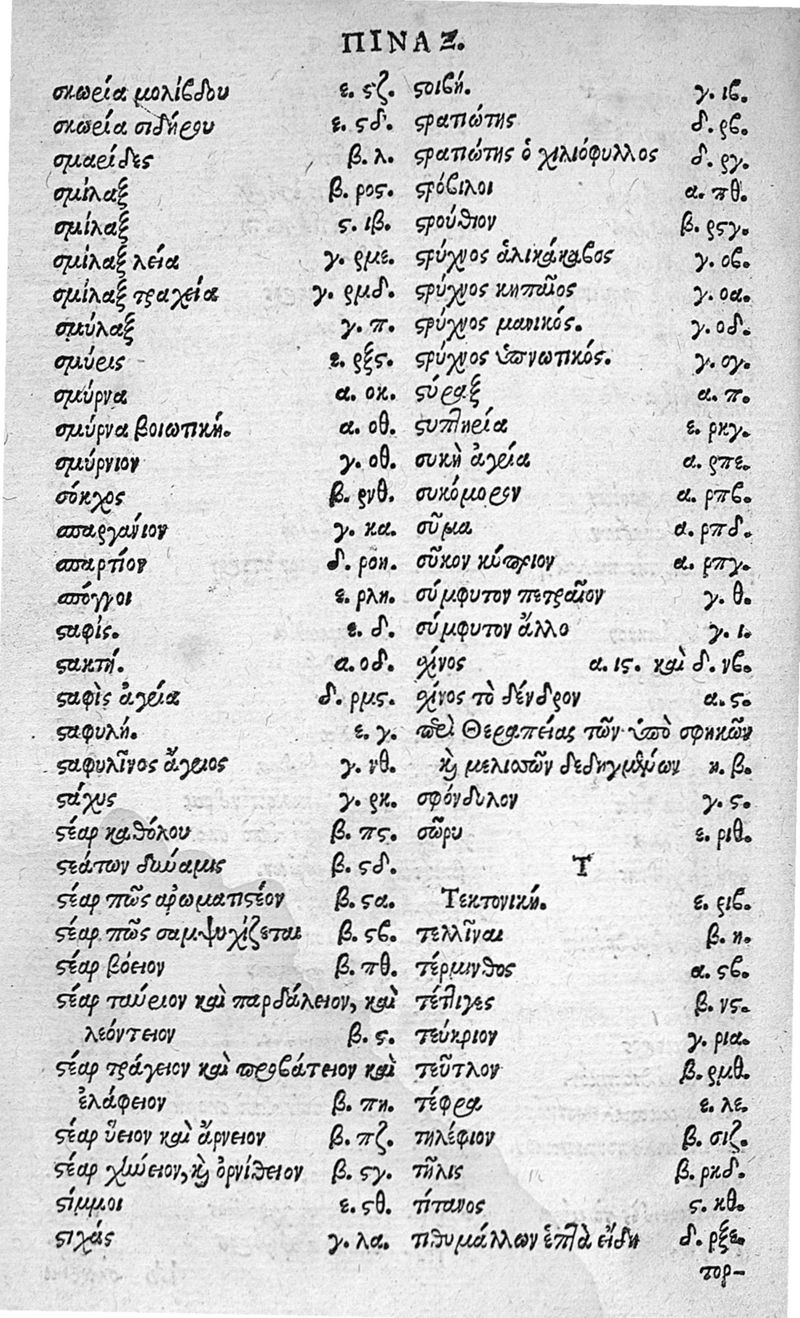 ΠΙΝΑΞ.
σκωρία μολίβδου ε. ϛζ.
σκωρία σιδήρου ε. ϛδ.
σμαρίδες β. λ.
σμίλαξ β. ροϛ.
σμίλαξ ϛ. ιβ.
σμίλαξ λεία γ. ρμε.
σμίλαξ τραχεία γ. ρμδ.
σμύλαξ γ. π.
σμύρις ε. ρξϛ.
σμύρνα α. οκ.
σμύρνα βοιωτική. α. οθ.
σμύρνιον γ. οθ.
σόκχος β. ρνθ.
σπαργάνιον γ. κα.
σπαρτίον δ. ροη.
σπόγγοι ε. ρλη.
ϛαφίς. ε. δ.
ϛακτή. α. οδ.
ϛαφὶς ἀγρία δ. ρμϛ.
ϛαφυλή. ε. γ.
ϛαφυλῖνος ἄγριος γ. νθ.
ϛάχυς γ. ρκ.
ϛέαρ καθόλου β. πϛ.
ϛεάτων δύναμις β. ϛδ.
ϛέαρ πῶς ἀρωματιϛέον β. ϛα.
ϛέαρ πῶς σαμψυχίζεται β. ϛβ.
ϛέαρ βόειον β. πθ.
ϛέαρ ταύριον καὶ παρδάλειον, καὶ
λεόντειον β. ϛ.
ϛέαρ τράγειον καὶ προβάτειον καὶ
ἐλάφειον β. πη.
ϛέαρ ὕειον καὶ ἄρνειον β. πζ.
ϛέαρ χήνειον, καὶ ὀρνίθειον β. ϛγ.
ϛίμμοι ε. ϛθ.
ϛιχάς γ. λα.
ϛοιβή. γ. ιβ.
ϛρατιώτης δ. ρβ.
ϛρατιώτης ὁ χιλιόφυλλος δ. ργ.
ϛρόβιλοι α. πθ.
ϛρούθιον β. ρϛγ.
ϛρύχνος ἁλικάκαβος γ. οβ.
ϛρύχνος κηπαῖος γ. οα.
ϛρύχνος μανικός. γ. οδ.
ϛρύχνος ὑπνωτικός. γ. ογ.
ϛύραξ α. π.
ϛυπληρία ε. ρκγ.
συκὴ ἀγρία α. ρπε.
συκόμορον α. ρπβ.
σῦμα α. ρπδ.
σῦκον κύπριον α. ρπγ.
σύμφυτον πετραῖον γ. θ.
σύμφυτον ἄλλο γ. ι.
σχίνος α. ιϛ. καὶ δ. νβ.
σχίνος τὸ δένδρον α. ϛ.
περὶ Θεραπείας τῶν ὑπὸ σφηκῶν
καὶ μελισσῶν δεδηγμένων η. β.
σφόνδυλον γ. ϛ.
σῶρυ ε. ριθ.
Τ
Τεκτονική. ε. ριβ.
τελλῖναι β. η.
τέρμινθος α. ϛβ.
τέτλιγες β. νϛ.
τεύκριον γ. ρια.
τεῦτλον β. ρμθ.
τέφρα ε. λε.
τηλέφιον β. σιζ.
τῆλις β. ρκδ.
τίτανος ϛ. κθ.
τιθυμάλλων ἑπτὰ εἴδη δ. ρξε.
τορ-